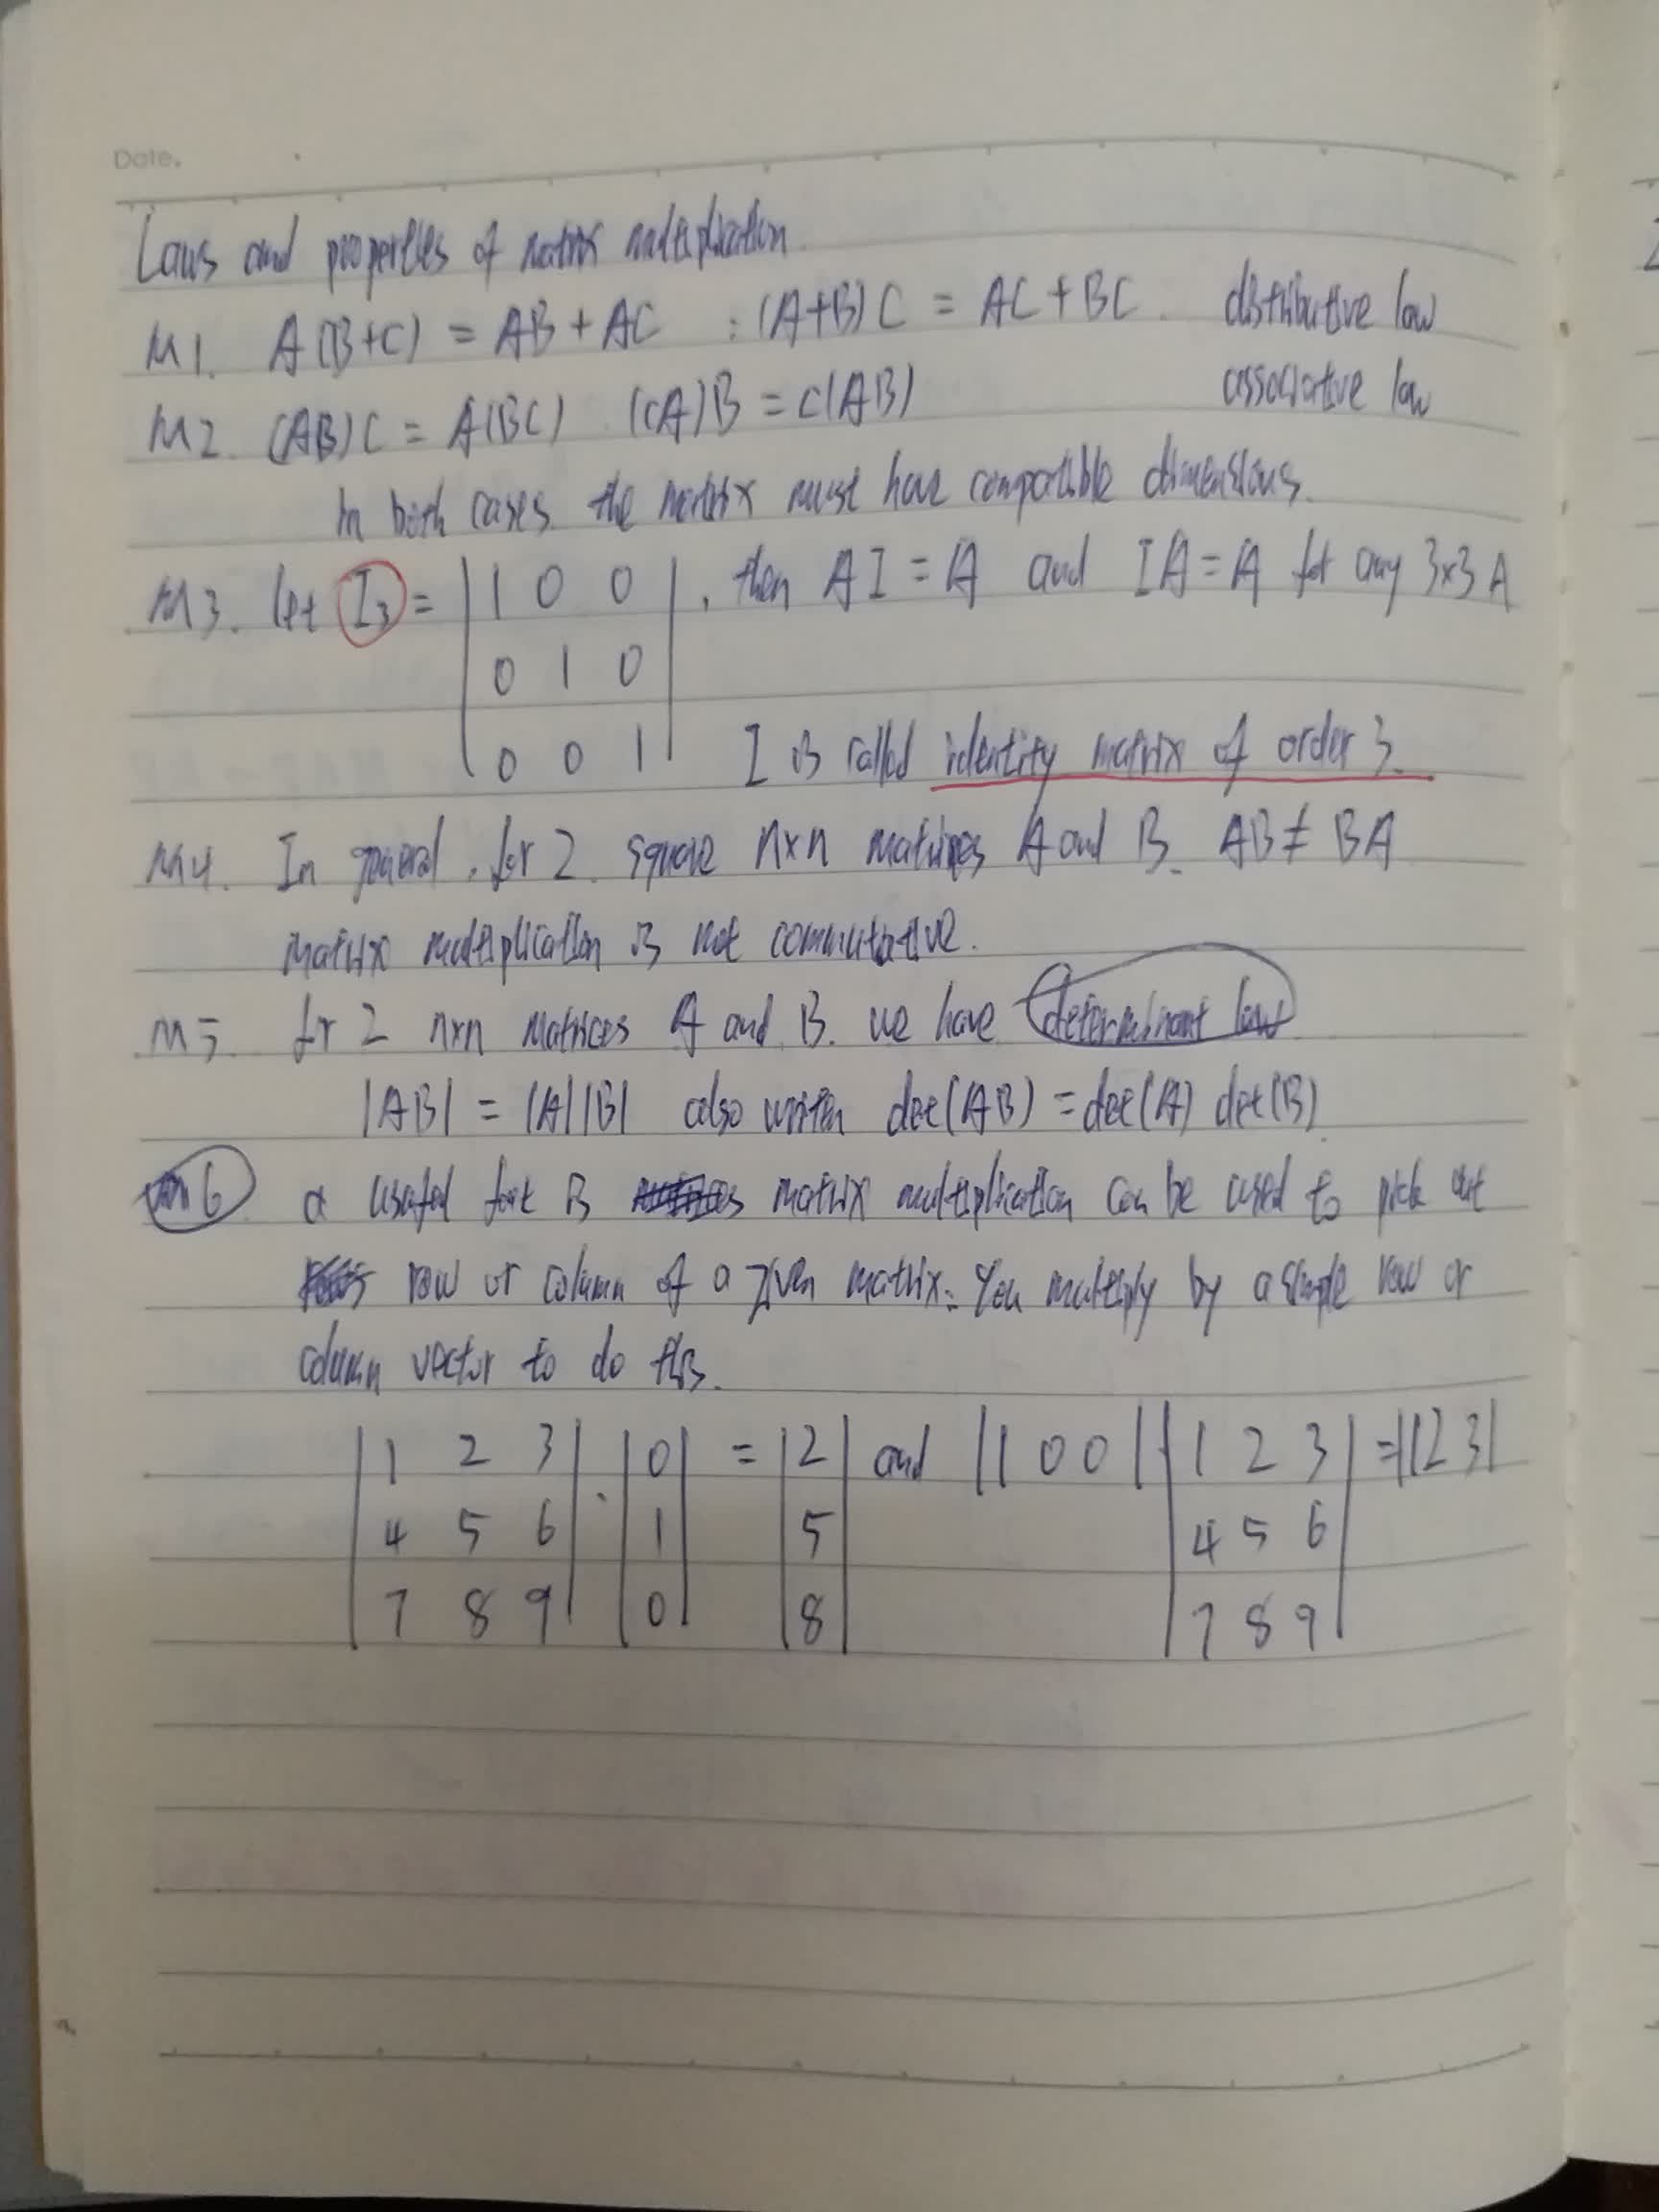 Date.
Laws and properties of matrix multiplication.
M1. A(B+C) = AB + AC : (A+B)C = AC + BC. distributive law
M2. (AB)C = A(BC) (cA)B = c(AB) associative law
In both cases the matrix must have compatible dimensions.
M3. let I₃ = | 1 0 0 | , then AI = A and IA = A for any 3x3 A
0 1 0
0 0 1 I is called identity matrix of order 3.
M4. In general, for 2 square nxn matrices A and B. AB ≠ BA
matrix multiplication is not commutative.
M5. for 2 nxn matrices A and B. we have determinant law
|AB| = |A||B| also written det(AB) = det(A) det(B)
m6 a useful fact is matrix multiplication can be used to pick out
row or column of a given matrix. You multiply by a simple row or
column vector to do this.
| 1 2 3 | . | 0 | = | 2 | and | 1 0 0 | | 1 2 3 | = | 1 2 3 |
| 4 5 6 | | 1 | | 5 | | 4 5 6 |
| 7 8 9 | | 0 | | 8 | | 7 8 9 |